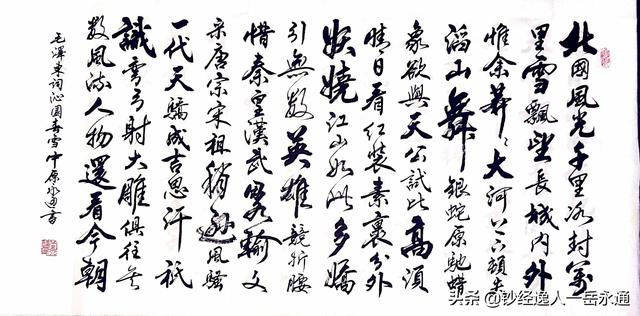 北國風光千里冰封萬
里雪飄望長城內外
惟余莽〻大河上下頓失
滔山舞銀蛇原馳蜡
象欲與天公試比高須
晴日看紅裝素裹分外
妖嬈江山如此多嬌
引無數英雄競折腰
惜秦皇漢武略輸文
采唐宗宋祖稍遜風騷
一代天驕成吉思汗祇
識彎弓射大雕俱往矣
數風流人物還看今朝
毛澤東詞沁園春雪中原永通書
头条 @钞经逸人一岳永通